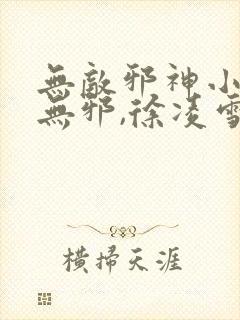 無敵邪神小
無邪,徐凌雪
橫掃天涯